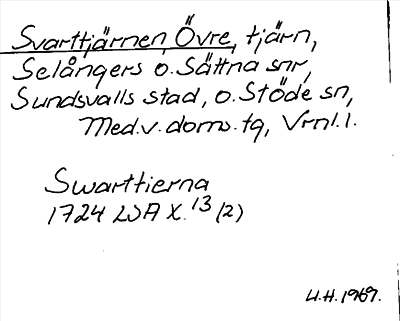 Svarttjärnen, Övre, tjärn,
Selångers o. Sättna snr,
Sundsvalls stad, o. Stöde sn,
Med.v. doms. tg, Vrnl. l.
Swarttierna
1724 LSA X. 13 (2)
U.H. 1969.